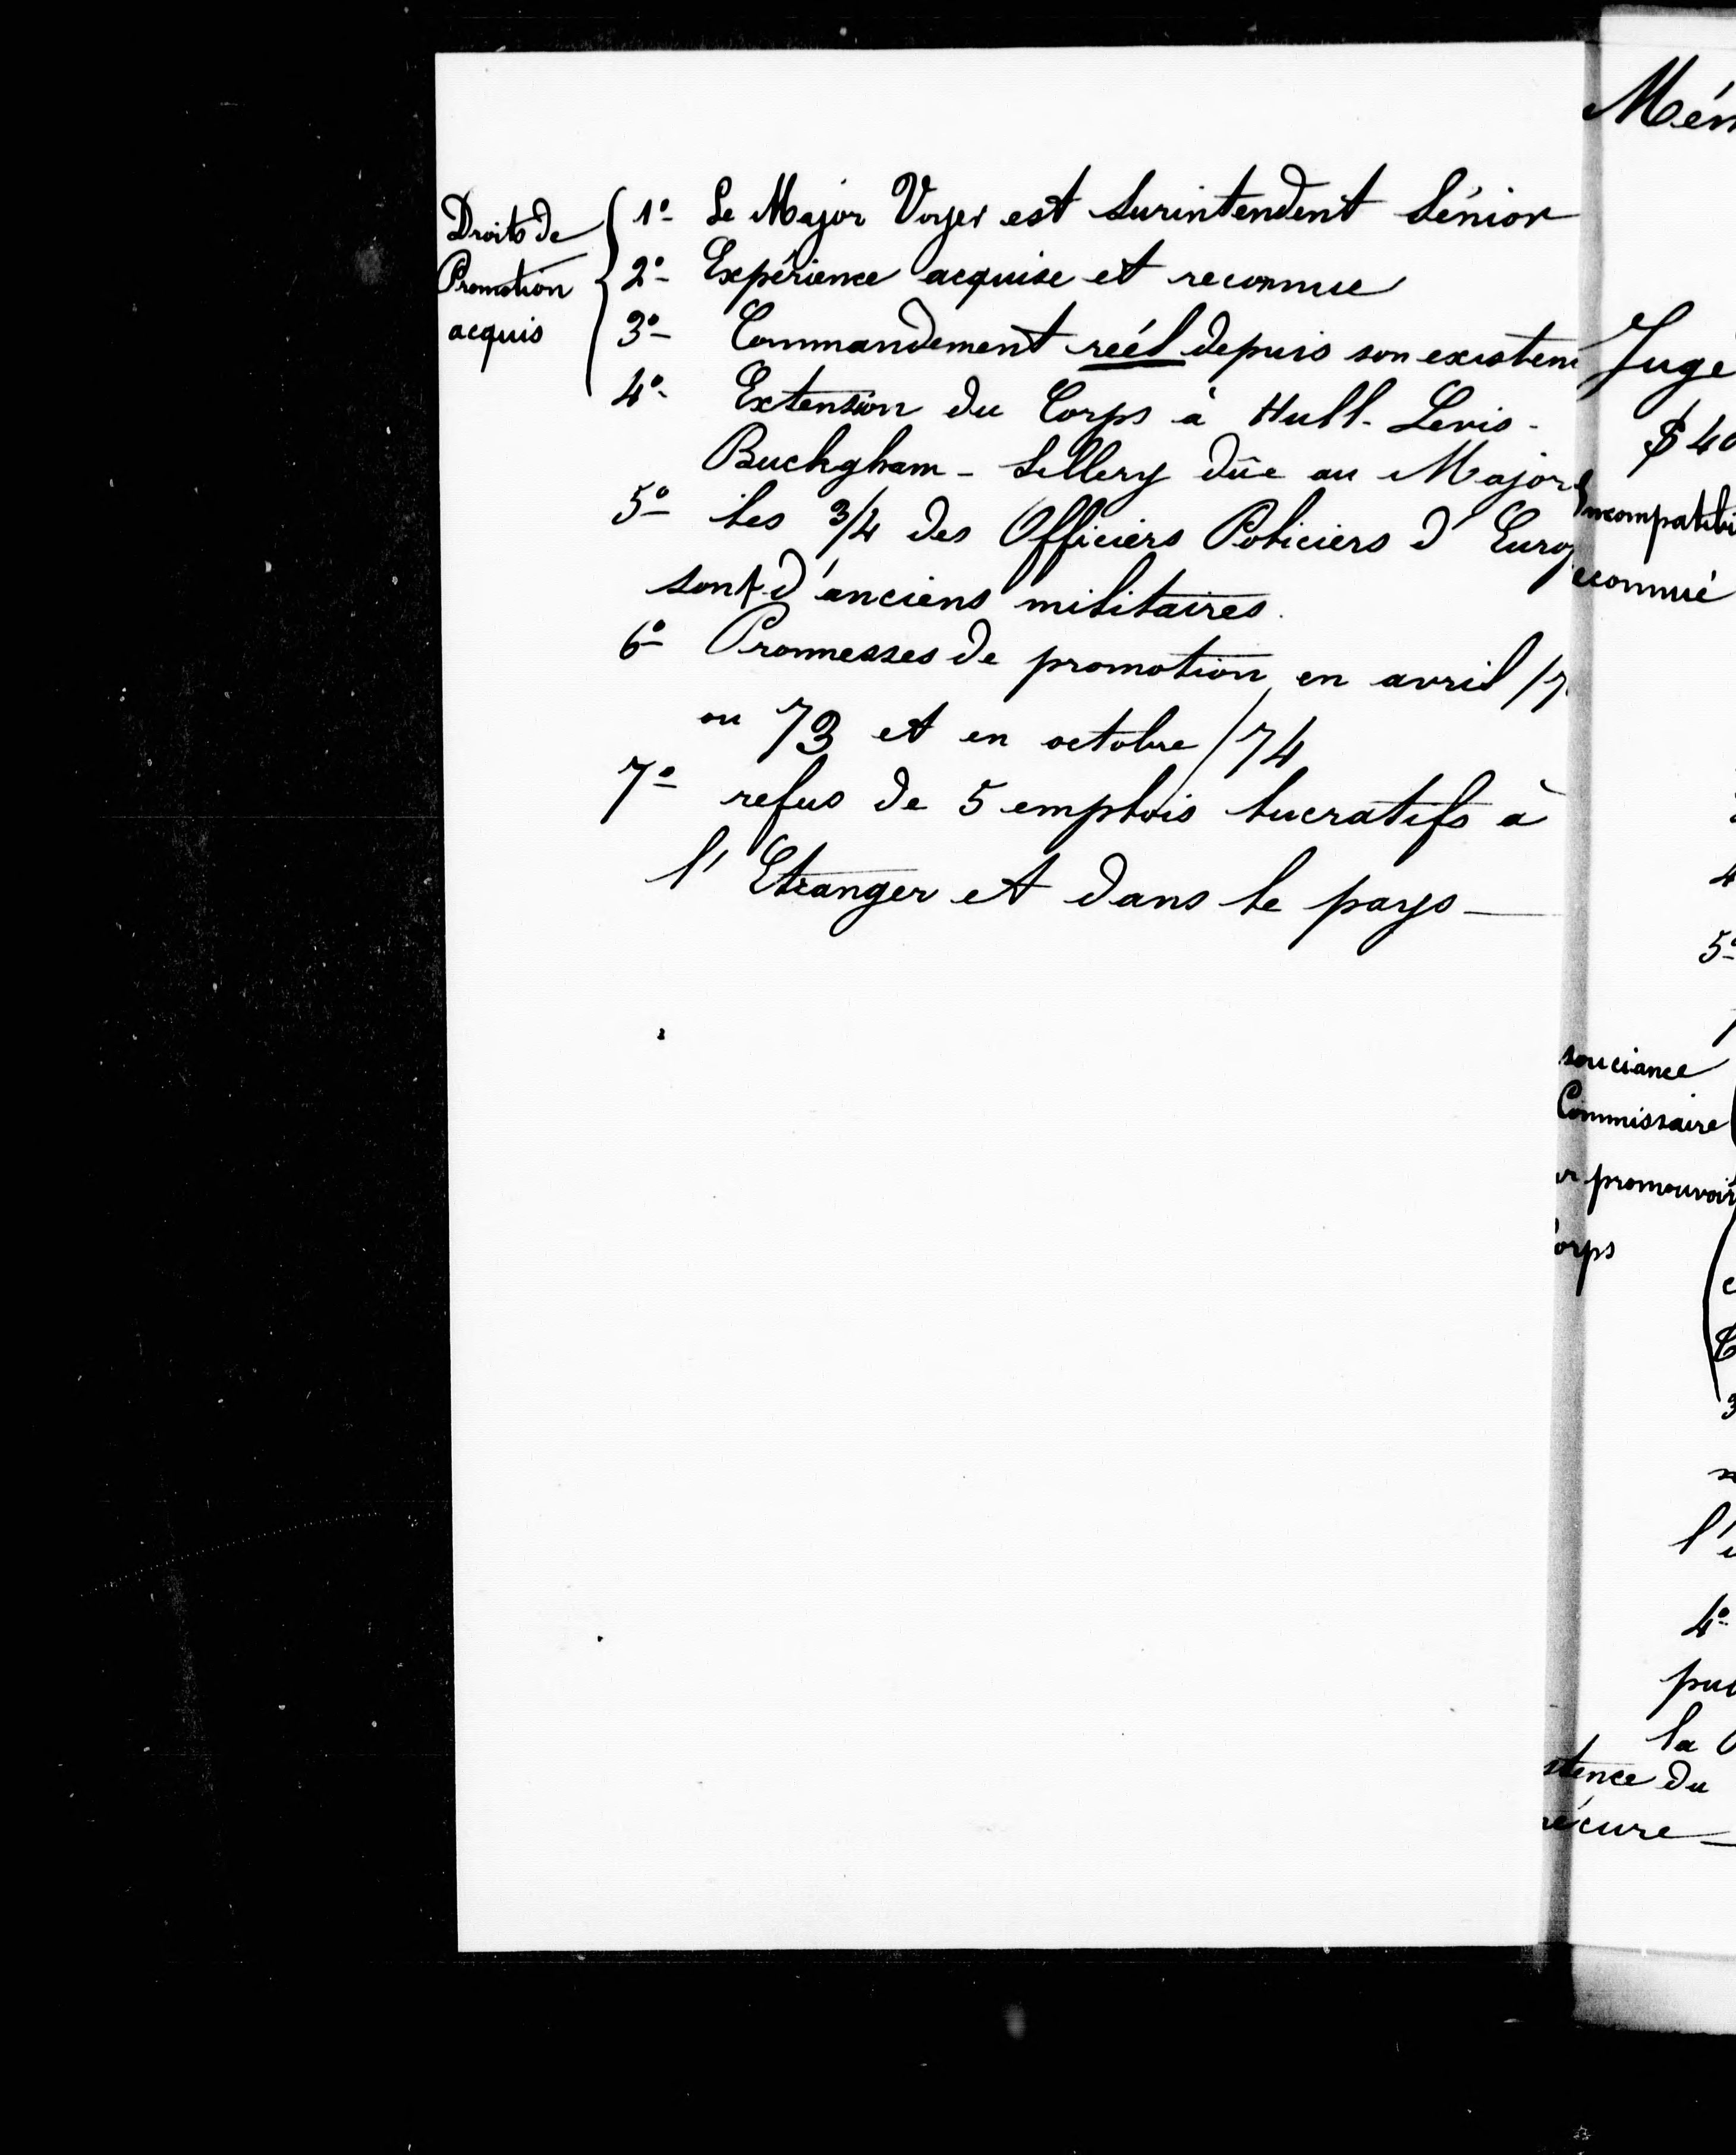 Droits de
Promotion
acquis
1º- Le Major Voyer est Surintendent Sénior
2º- Expérience acquise et reconnue
3º- Commandement réél depuis son existen
4º- Extension du Corps à Hull- Levis-
Buckgham - Sillery dûe au Major
5º- les 3/4 des Officiers Policiers d'Euro
sont d'anciens militaires.
6º- Promesses de promotion en avril /7
ou 73 et en octobre /74
7º- refus de 5 emplois lucratifs à
l'Etranger et dans le pays-
Mém
Juge
$40
Incompatibi
econnué
4
5º-
souciance
Commissaire
r promouvoir
orps
3
4º-
pu
la
stence du
récure-